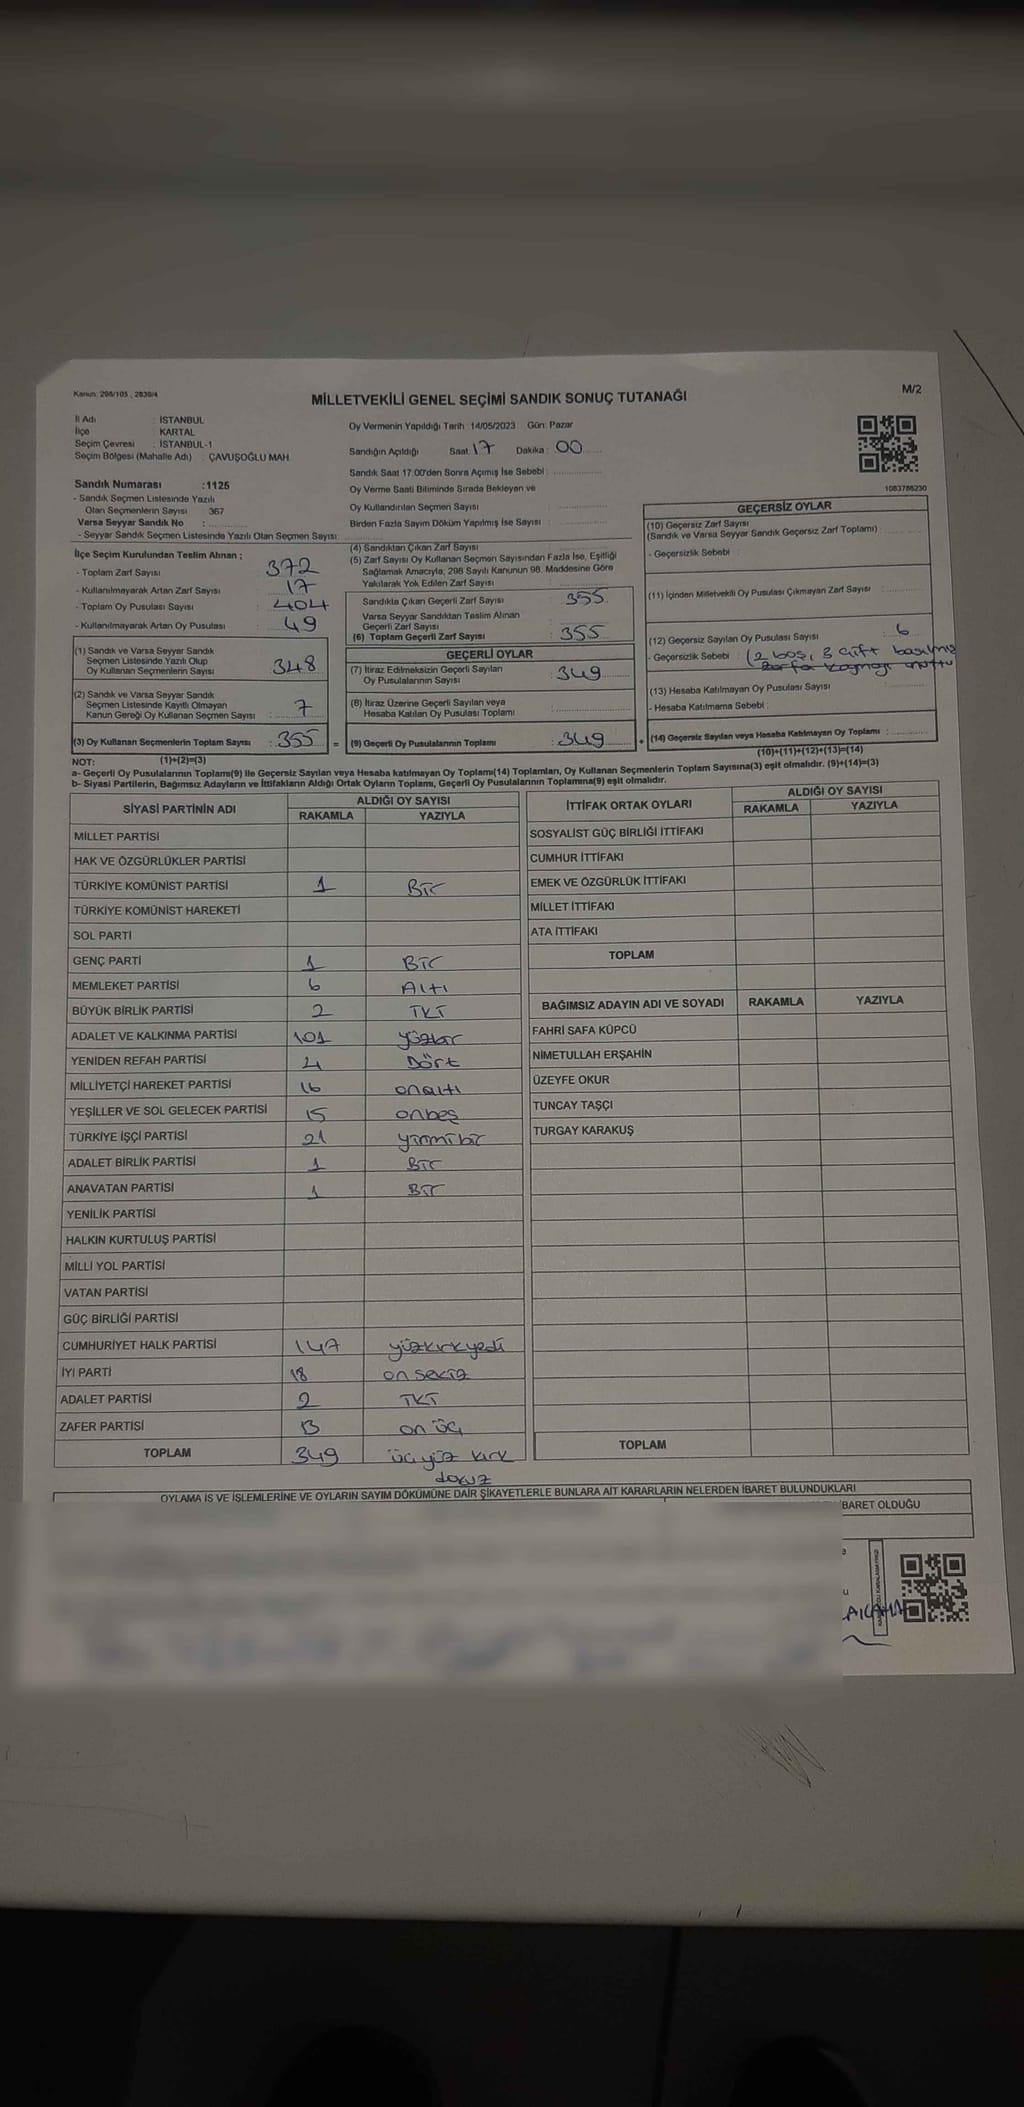 Kanun: 298/105 , 2839/4
M/2
MİLLETVEKİLİ GENEL SEÇİMİ SANDIK SONUÇ TUTANAĞI
İl Adı : İSTANBUL
İlçe : KARTAL
Seçim Çevresi : İSTANBUL-1
Seçim Bölgesi (Mahalle Adı) : ÇAVUŞOĞLU MAH.
Sandık Numarası :1125
- Sandık Seçmen Listesinde Yazılı
Olan Seçmenlerin Sayısı : 367
Varsa Seyyar Sandık No :
- Seyyar Sandık Seçmen Listesinde Yazılı Olan Seçmen Sayısı:
İlçe Seçim Kurulundan Teslim Alınan ;
- Toplam Zarf Sayısı : 372
- Kullanılmayarak Artan Zarf Sayısı : 17
- Toplam Oy Pusulası Sayısı : 404
- Kullanılmayarak Artan Oy Pusulası : 49
(1) Sandık ve Varsa Seyyar Sandık
Seçmen Listesinde Yazılı Olup
Oy Kullanan Seçmenlerin Sayısı : 348
(2) Sandık ve Varsa Seyyar Sandık
Seçmen Listesinde Kayıtlı Olmayan
Kanun Gereği Oy Kullanan Seçmen Sayısı : 7
(3) Oy Kullanan Seçmenlerin Toplam Sayısı : 355 =
(1)+(2)=(3)
Oy Vermenin Yapıldığı Tarih :14/05/2023 Gün: Pazar
Sandığın Açıldığı Saat: 17 Dakika: 00
Sandık Saat 17:00'den Sonra Açılmış İse Sebebi:
Oy Verme Saati Bitiminde Sırada Bekleyen ve
Oy Kullandırılan Seçmen Sayısı :
Birden Fazla Sayım Döküm Yapılmış İse Sayısı :
(4) Sandıktan Çıkan Zarf Sayısı :
(5) Zarf Sayısı Oy Kullanan Seçmen Sayısından Fazla İse, Eşitliği
Sağlamak Amacıyla; 298 Sayılı Kanunun 98. Maddesine Göre
Yakılarak Yok Edilen Zarf Sayısı :
Sandıkta Çıkan Geçerli Zarf Sayısı : 355
Varsa Seyyar Sandıktan Teslim Alınan
Geçerli Zarf Sayısı :
(6) Toplam Geçerli Zarf Sayısı : 355
GEÇERLİ OYLAR
(7) İtiraz Edilmeksizin Geçerli Sayılan
Oy Pusulalarının Sayısı : 349
(8) İtiraz Üzerine Geçerli Sayılan veya
Hesaba Katılan Oy Pusulası Toplamı :
(9) Geçerli Oy Pusulalarının Toplamı : 349 +
1083786230
GEÇERSİZ OYLAR
(10) Geçersiz Zarf Sayısı
(Sandık ve Varsa Seyyar Sandık Geçersiz Zarf Toplamı) :
- Geçersizlik Sebebi :
(11) İçinden Milletvekili Oy Pusulası Çıkmayan Zarf Sayısı :
(12) Geçersiz Sayılan Oy Pusulası Sayısı : 6
- Geçersizlik Sebebi : (2 boş, 3 çift basılmış
zarfa koymayı unuttu
(13) Hesaba Katılmayan Oy Pusulası Sayısı :
- Hesaba Katılmama Sebebi :
(14) Geçersiz Sayılan veya Hesaba Katılmayan Oy Toplamı :
(10)+(11)+(12)+(13)=(14)
NOT:
a- Geçerli Oy Pusulalarının Toplamı(9) ile Geçersiz Sayılan veya Hesaba katılmayan Oy Toplamı(14) Toplamları, Oy Kullanan Seçmenlerin Toplam Sayısına(3) eşit olmalıdır. (9)+(14)=(3)
b- Siyasi Partilerin, Bağımsız Adayların ve İttifakların Aldığı Ortak Oyların Toplamı, Geçerli Oy Pusulalarının Toplamına(9) eşit olmalıdır.
SİYASİ PARTİNİN ADI ALDIĞI OY SAYISI
RAKAMLA YAZIYLA
MİLLET PARTİSİ
HAK VE ÖZGÜRLÜKLER PARTİSİ
TÜRKİYE KOMÜNİST PARTİSİ 1 Bir
TÜRKİYE KOMÜNİST HAREKETİ
SOL PARTİ
GENÇ PARTİ 1 Bir
MEMLEKET PARTİSİ 6 Altı
BÜYÜK BİRLİK PARTİSİ 2 İki
ADALET VE KALKINMA PARTİSİ 101 yüzbir
YENİDEN REFAH PARTİSİ 4 Dört
MİLLİYETÇİ HAREKET PARTİSİ 16 onaltı
YEŞİLLER VE SOL GELECEK PARTİSİ 15 onbeş
TÜRKİYE İŞÇİ PARTİSİ 21 yirmibir
ADALET BİRLİK PARTİSİ 1 Bir
ANAVATAN PARTİSİ 1 Bir
YENİLİK PARTİSİ
HALKIN KURTULUŞ PARTİSİ
MİLLİ YOL PARTİSİ
VATAN PARTİSİ
GÜÇ BİRLİĞİ PARTİSİ
CUMHURİYET HALK PARTİSİ 147 yüzkırkyedi
İYİ PARTİ 18 onsekiz
ADALET PARTİSİ 2 İki
ZAFER PARTİSİ 13 on üç
TOPLAM 349 üçyüz kırk
dokuz
İTTİFAK ORTAK OYLARI ALDIĞI OY SAYISI
RAKAMLA YAZIYLA
SOSYALİST GÜÇ BİRLİĞİ İTTİFAKI
CUMHUR İTTİFAKI
EMEK VE ÖZGÜRLÜK İTTİFAKI
MİLLET İTTİFAKI
ATA İTTİFAKI
TOPLAM
BAĞIMSIZ ADAYIN ADI VE SOYADI RAKAMLA YAZIYLA
FAHRİ SAFA KÜPCÜ
NİMETULLAH ERŞAHİN
ÜZEYFE OKUR
TUNCAY TAŞÇI
TURGAY KARAKUŞ
TOPLAM
OYLAMA İŞ VE İŞLEMLERİNE VE OYLARIN SAYIM DÖKÜMÜNE DAİR ŞİKAYETLERLE BUNLARA AİT KARARLARIN NELERDEN İBARET BULUNDUKLARI
İBARET OLDUĞU